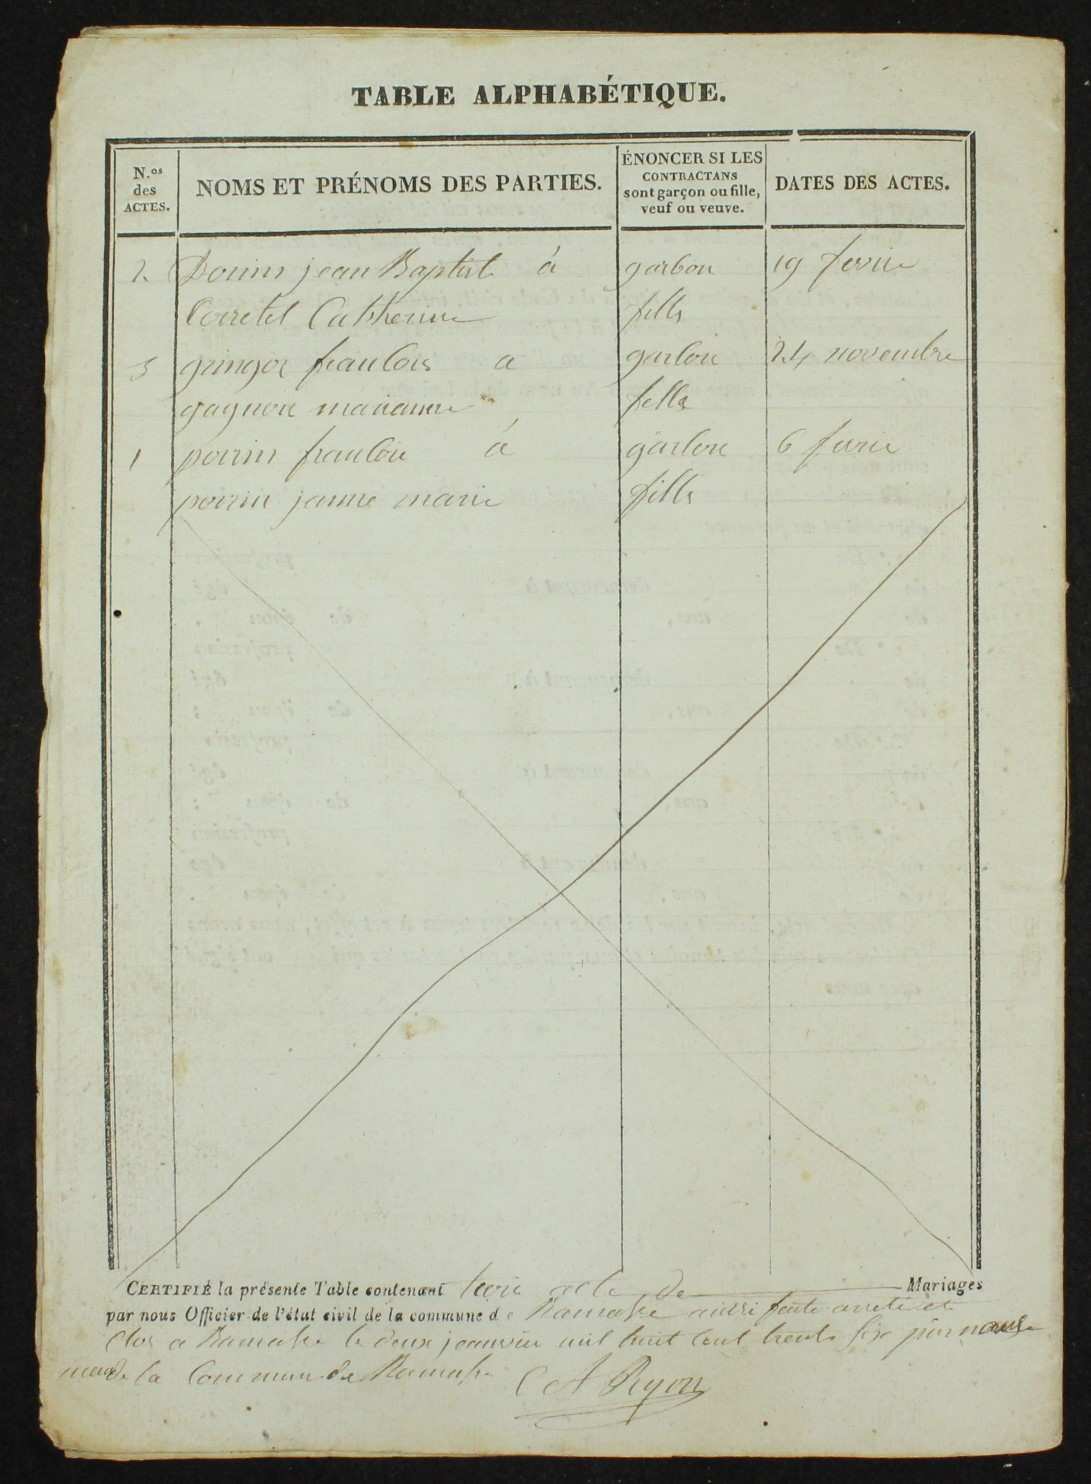 TABLE ALPHABÉTIQUE.
N.os des ACTES.
NOMS ET PRÉNOMS DES PARTIES.
ÉNONCER SI LES CONTRACTANS sont garçon ou fille, veuf ou veuve.
DATES DES ACTES.
2 jean Baptist à garbon 19 fevrie
Catherine fille
3 gringoz franbois a garbon 24 novembre
gagnon marianne fille
1 perrin franboi à garbon 6 fevrie
perrin janne marie fille
CERTIFIÉ la présente Table contenant acte de Mariages
par nous Officier de l'état civil de la commune de Ramasse
Clos a Ramasse le deux janvier mil huit cent trente six par nous
maire de la Commune de Ramasse